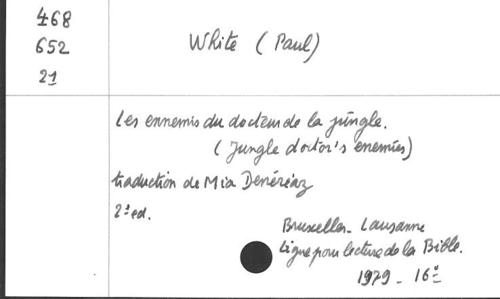 468
652
21
White (Paul)
Les ennemis du docteur de la jungle.
(Jungle doctor's enemies)
traduction de Mia Denéréaz
2e ed.
Bruxelles - Lausanne
Ligue pour lecture de la Bible.
1979 - 16°